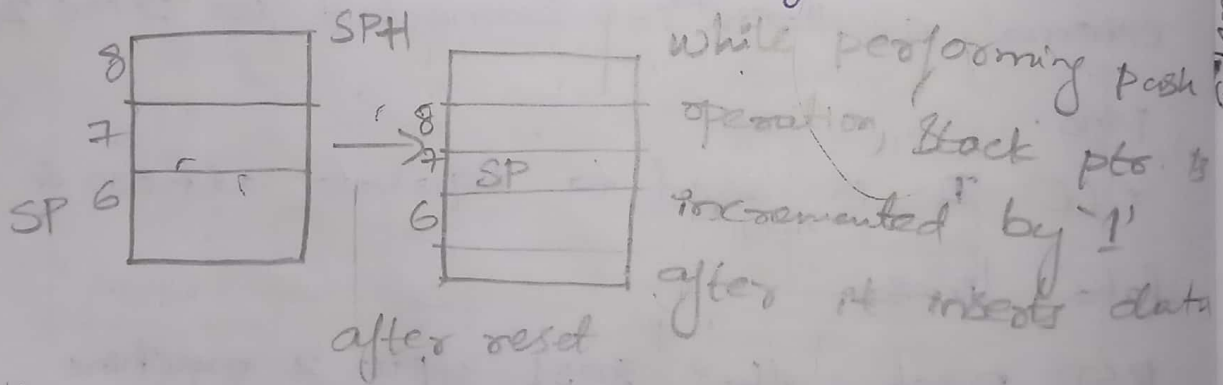 SPH
8
7
SP 6
8
7 SP
6
after reset
while performing push
operation, Stack ptr. is
incremented by '1'
after it inserts data